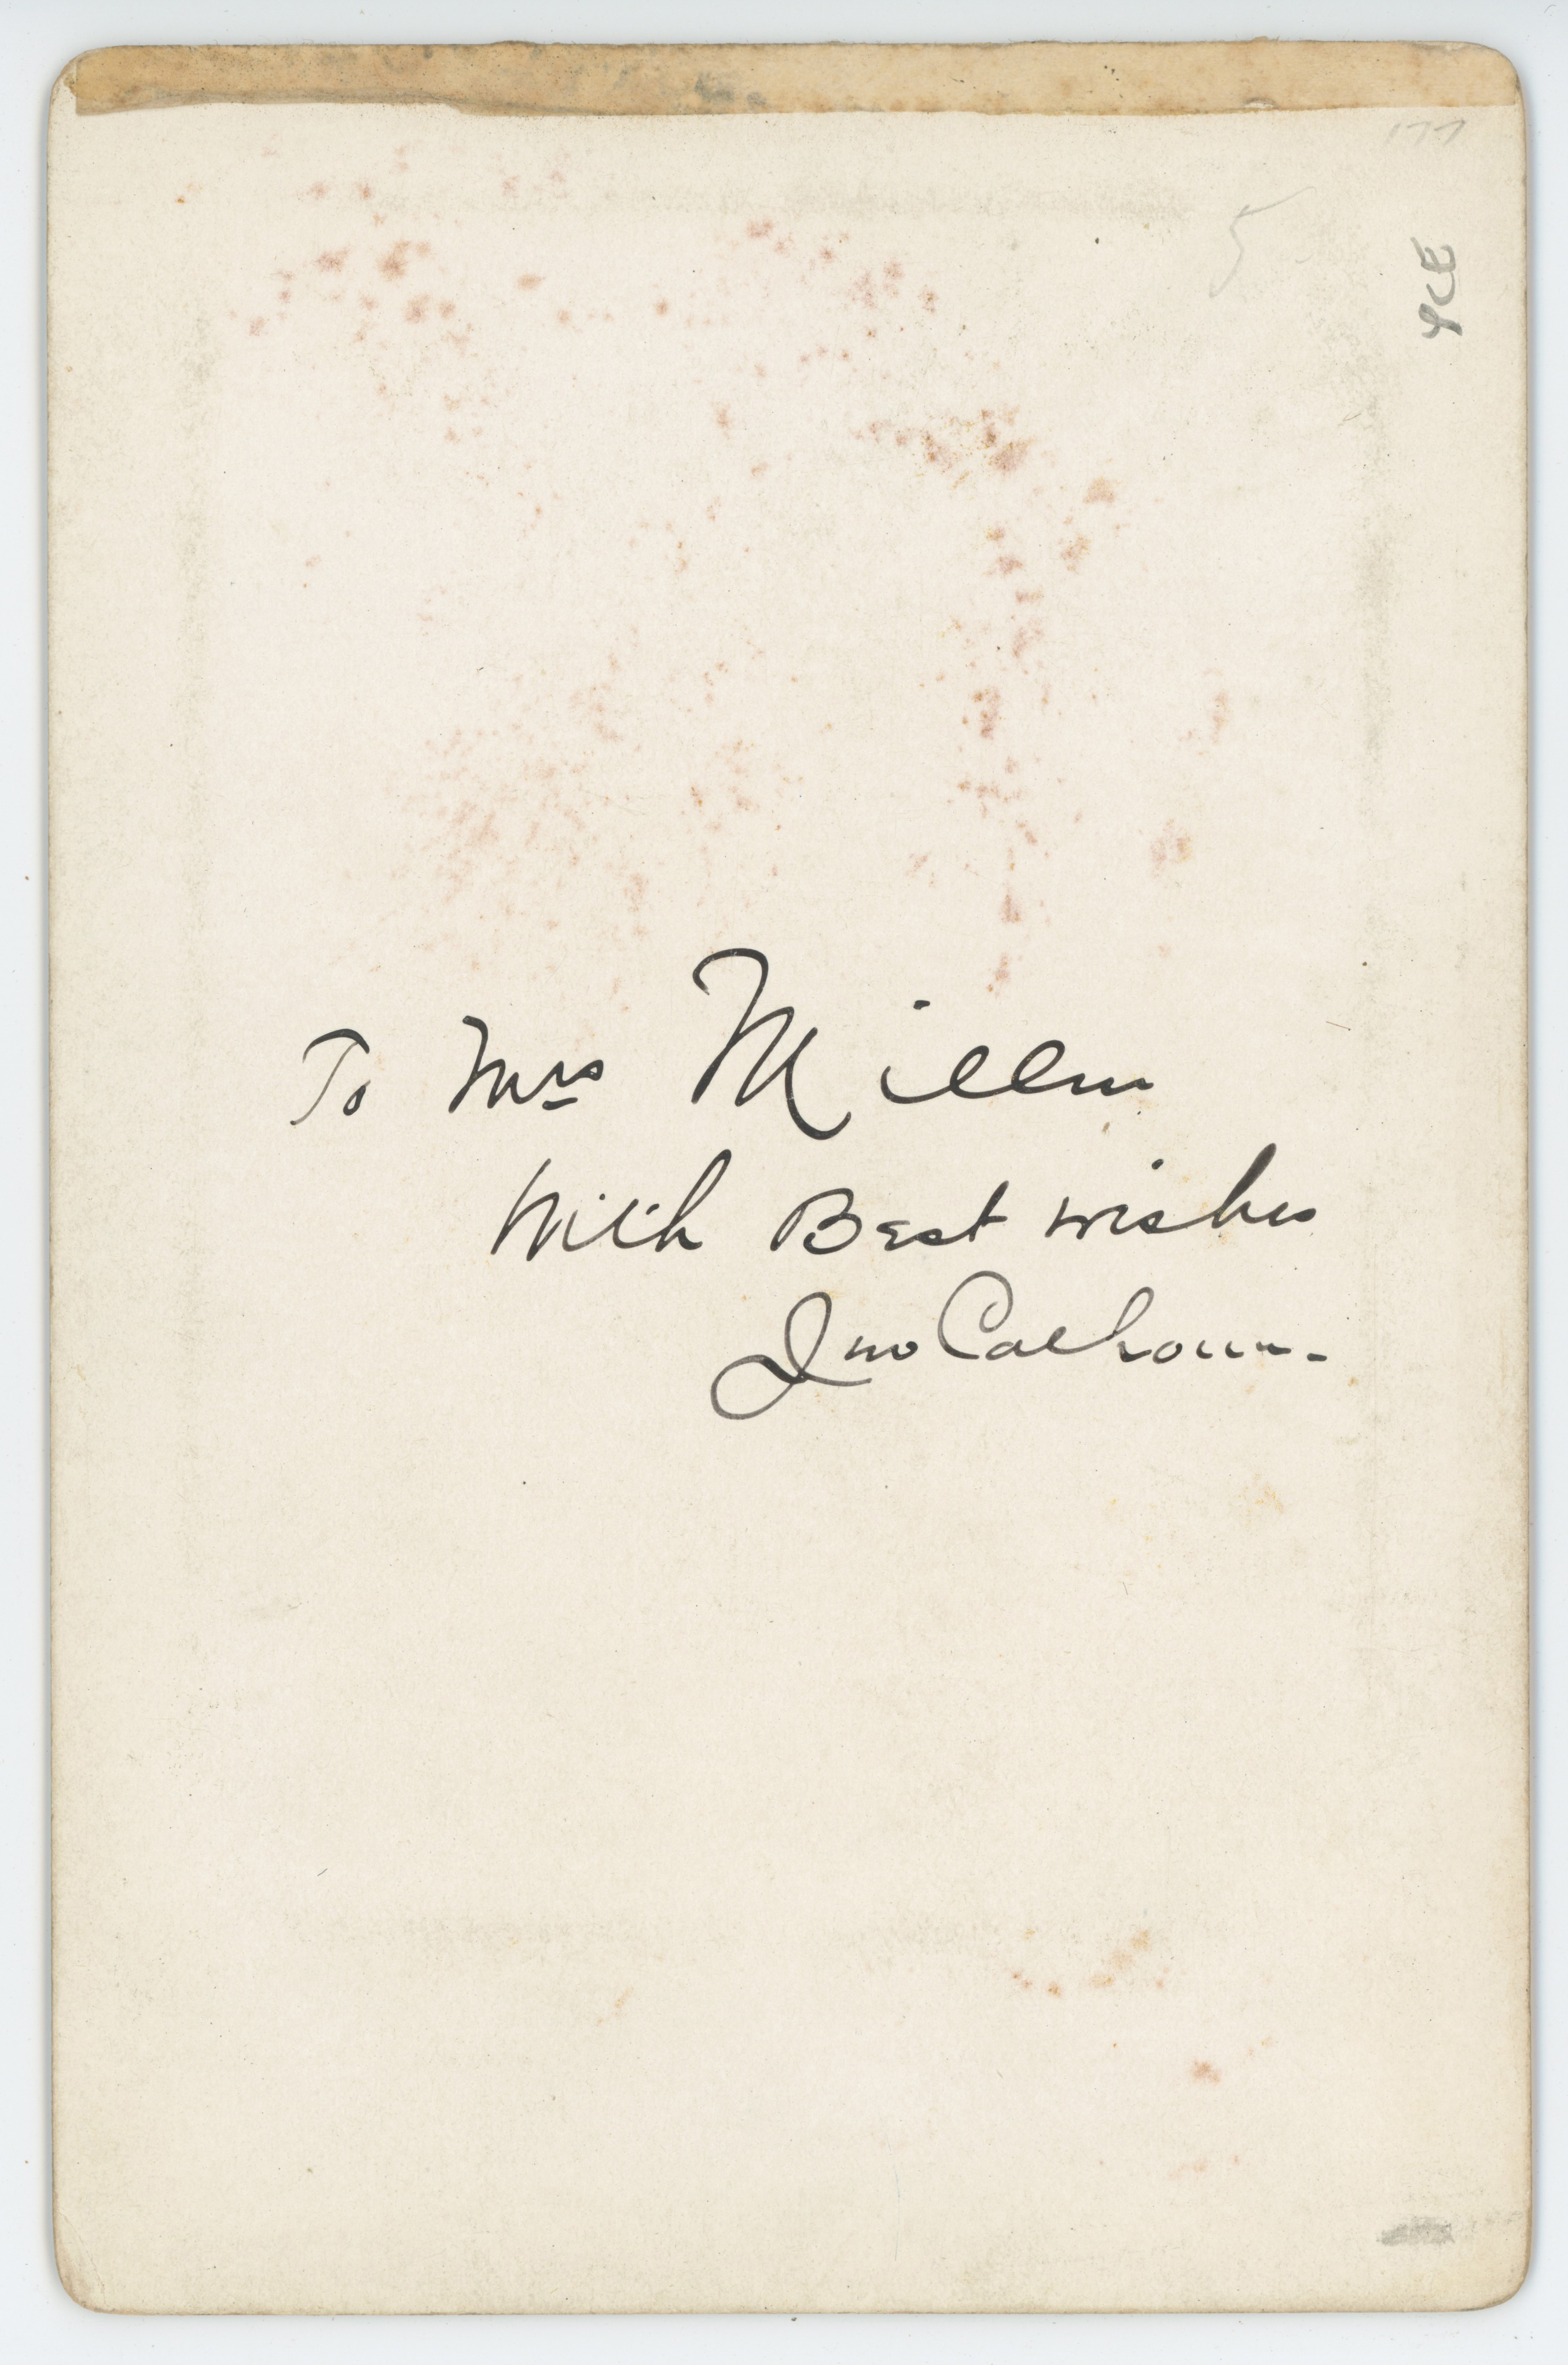 5
To Mrs Miller
With Best wishes
Jno Calhoun.